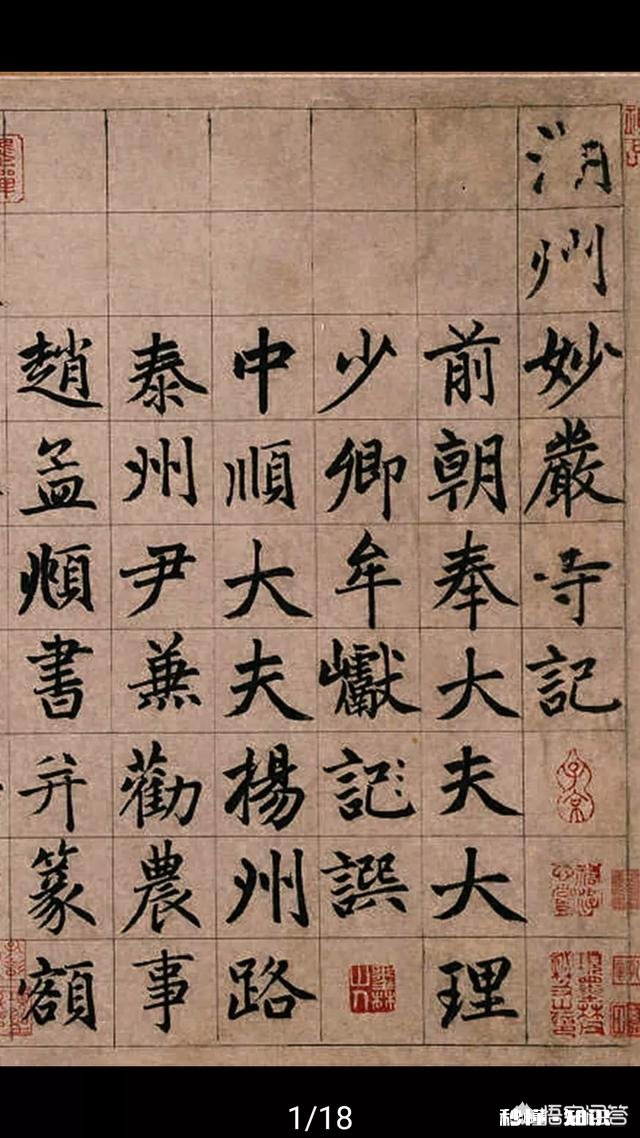 湖州妙嚴寺記
前朝奉大夫大理
少卿牟巘記譔
中順大夫楊州路
泰州尹兼勸農事
趙孟頫書并篆額
1/18
悟空问答